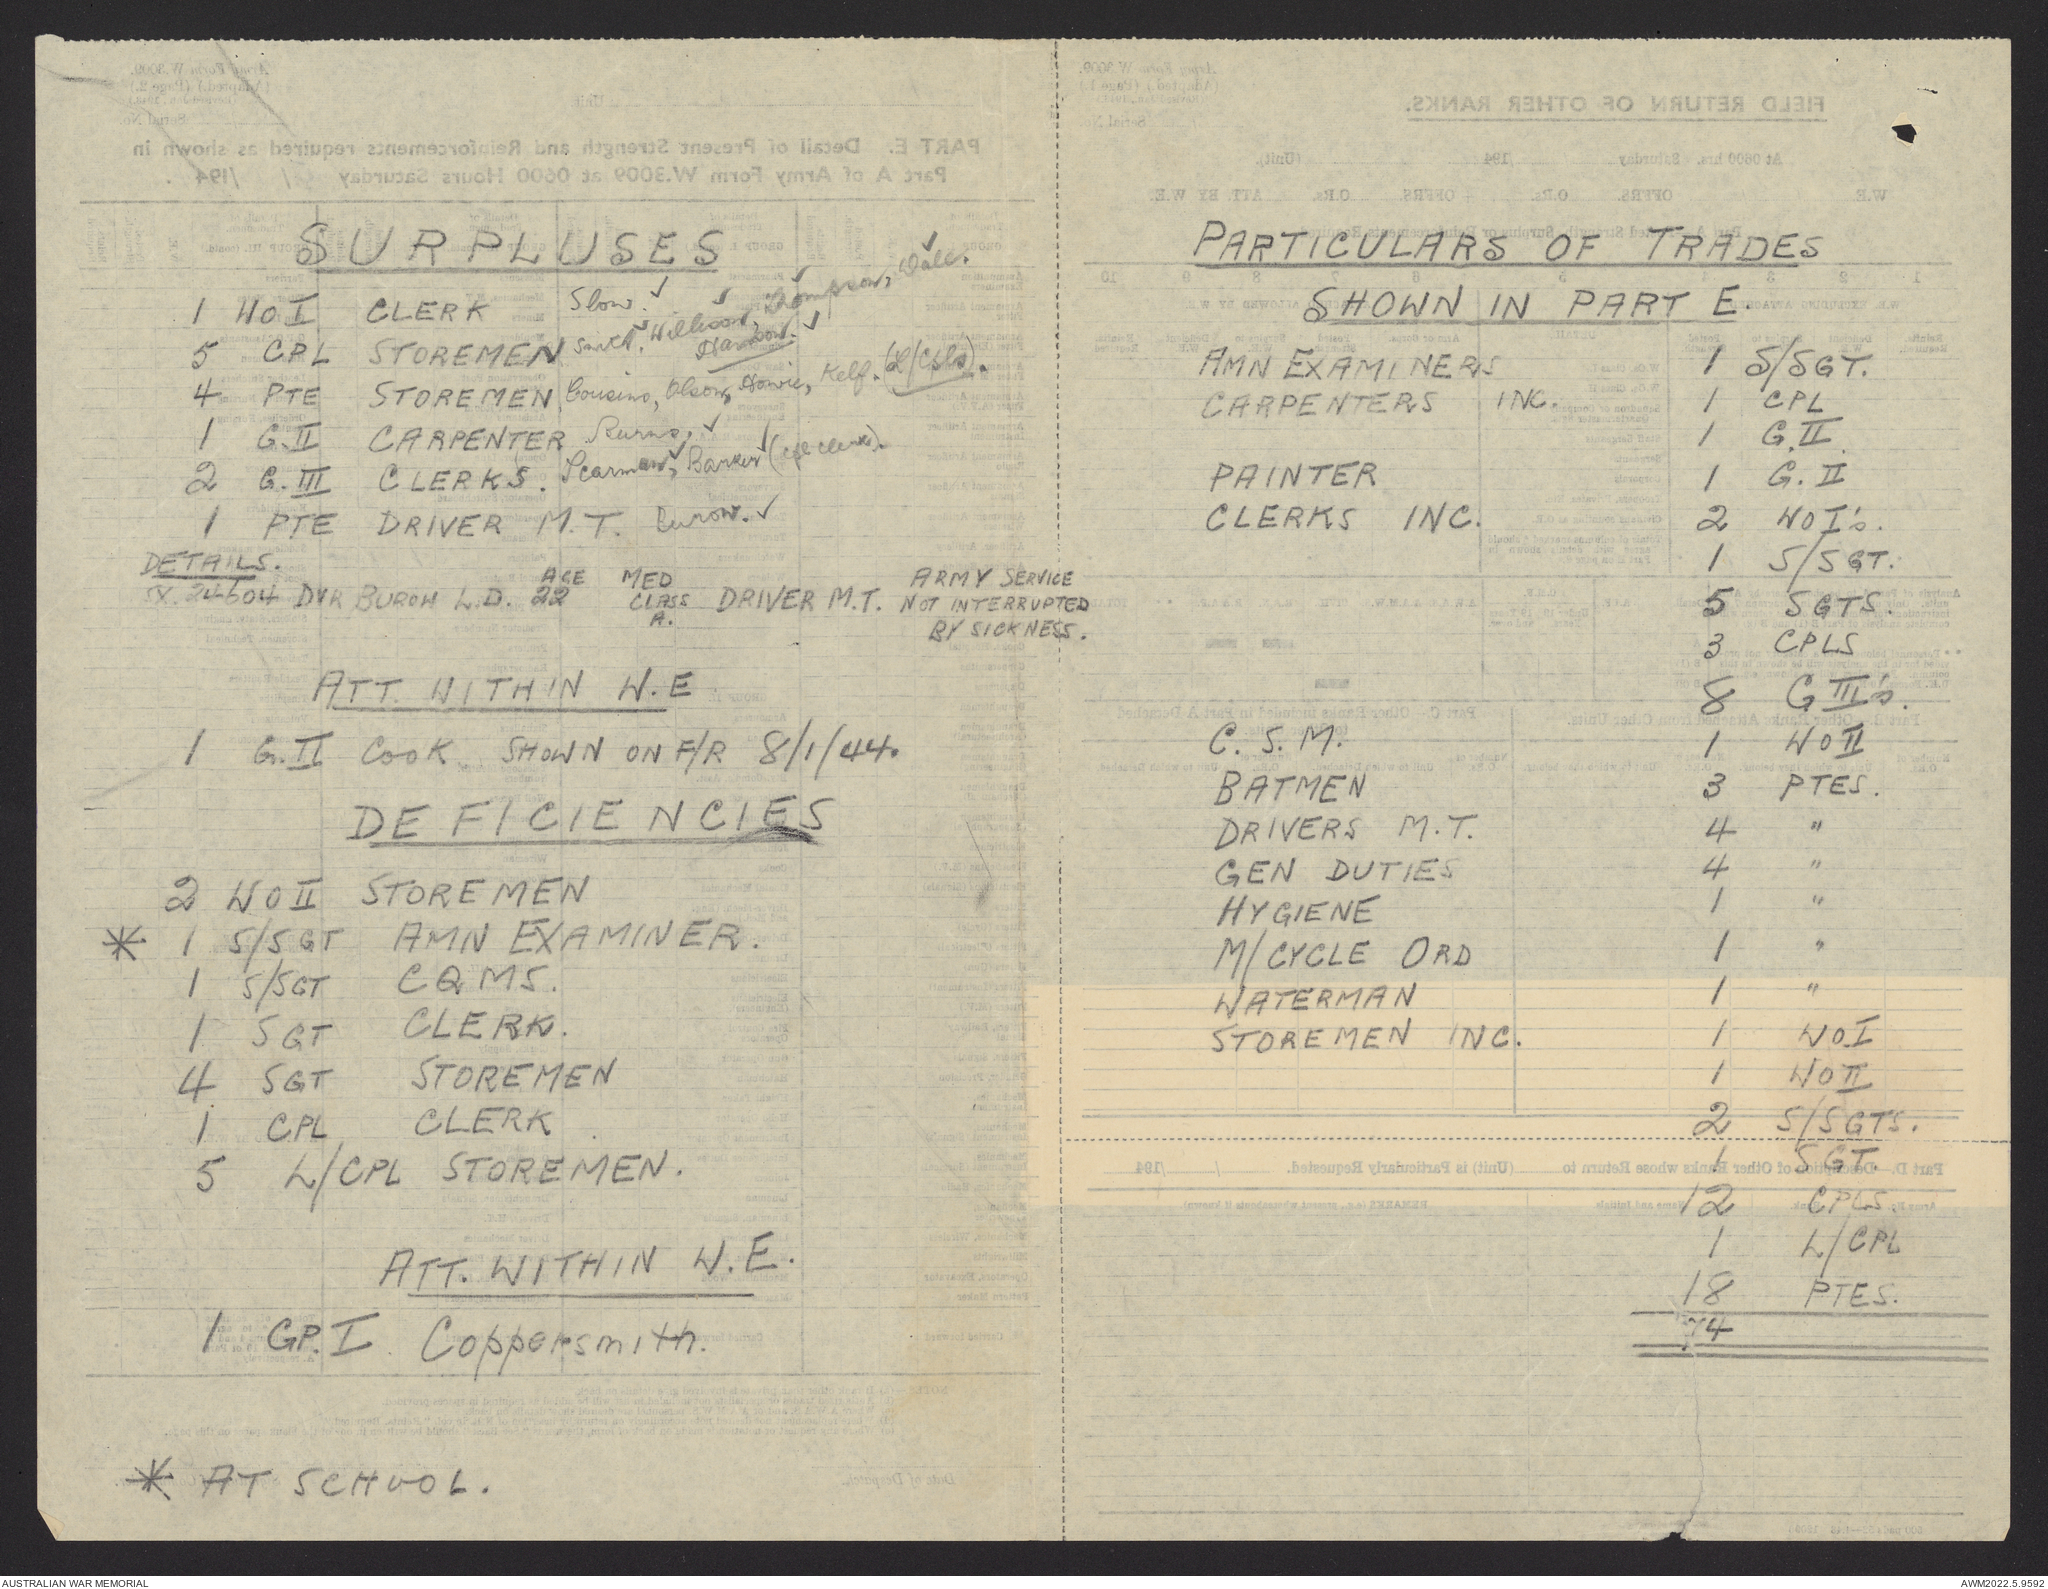 SURPLUSES
1 WO I CLERK Slow. ✓
5 CPL STOREMEN Smith, Williams, Thompson, Dale.
4 PTE STOREMEN Cousins, Olson, Howie, Kelf. (L/Cpls).
1 G.II CARPENTER
2 G.III CLERKS. Scarman, Barker (Cpl clerks).
1 PTE DRIVER M.T. Burow. ✓
DETAILS.
SX.24604 DVR BUROW L.D. AGE 22 MED CLASS A. DRIVER M.T. ARMY SERVICE NOT INTERRUPTED BY SICKNESS.
ATT. WITHIN W.E
1 G.II COOK SHOWN ON F/R 8/1/44.
DEFICIENCIES
2 WO II STOREMEN
* 1 S/SGT AMN EXAMINER.
1 S/SGT CQMS.
1 SGT CLERK.
4 SGT STOREMEN
1 CPL CLERK
5 L/CPL STOREMEN.
ATT. WITHIN W.E.
1 GP.I Coppersmith.
* AT SCHOOL.
PARTICULARS OF TRADES
SHOWN IN PART E.
AMN EXAMINERS 1 S/SGT.
CARPENTERS INC. 1 CPL
1 G.II
PAINTER 1 G.II
CLERKS INC. 2 WO I's.
1 S/SGT.
5 SGTS.
3 CPLS
8 G III's.
C.S.M. 1 WO II
BATMEN 3 PTES.
DRIVERS M.T. 4 "
GEN DUTIES 4 "
HYGIENE 1 "
M/CYCLE ORD 1 "
WATERMAN 1 "
STOREMEN INC. 1 WO I
1 WO II
2 S/SGTS.
1 SGT
12 CPLS.
1 L/CPL
18 PTES.
74
AUSTRALIAN WAR MEMORIAL
AWM2022.5.9592